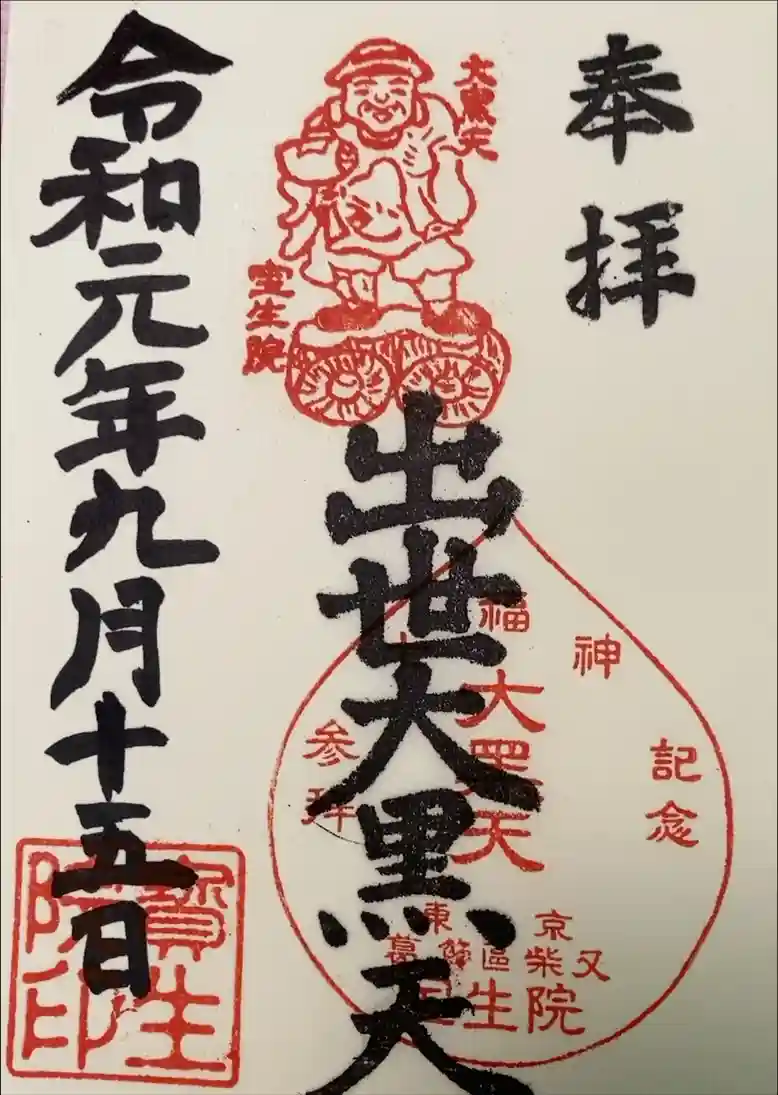 奉拝
大黒天
宝生院
出世大黒天
福神
記念
参拝
大黒天
東京
葛飾區柴又
宝生院
令和元年九月十五日
寶生
院印